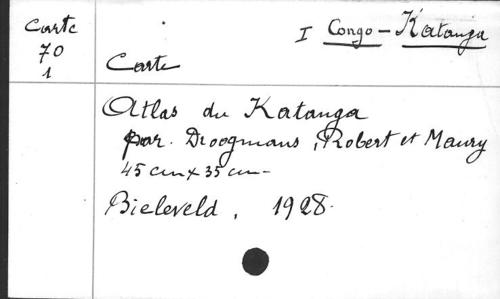 Carte
70
1
I Congo - Katanga
Carte
Atlas du Katanga
par. Droogmans, Robert et Maury
45 cm x 35 cm -
Bieleveld, 1928.